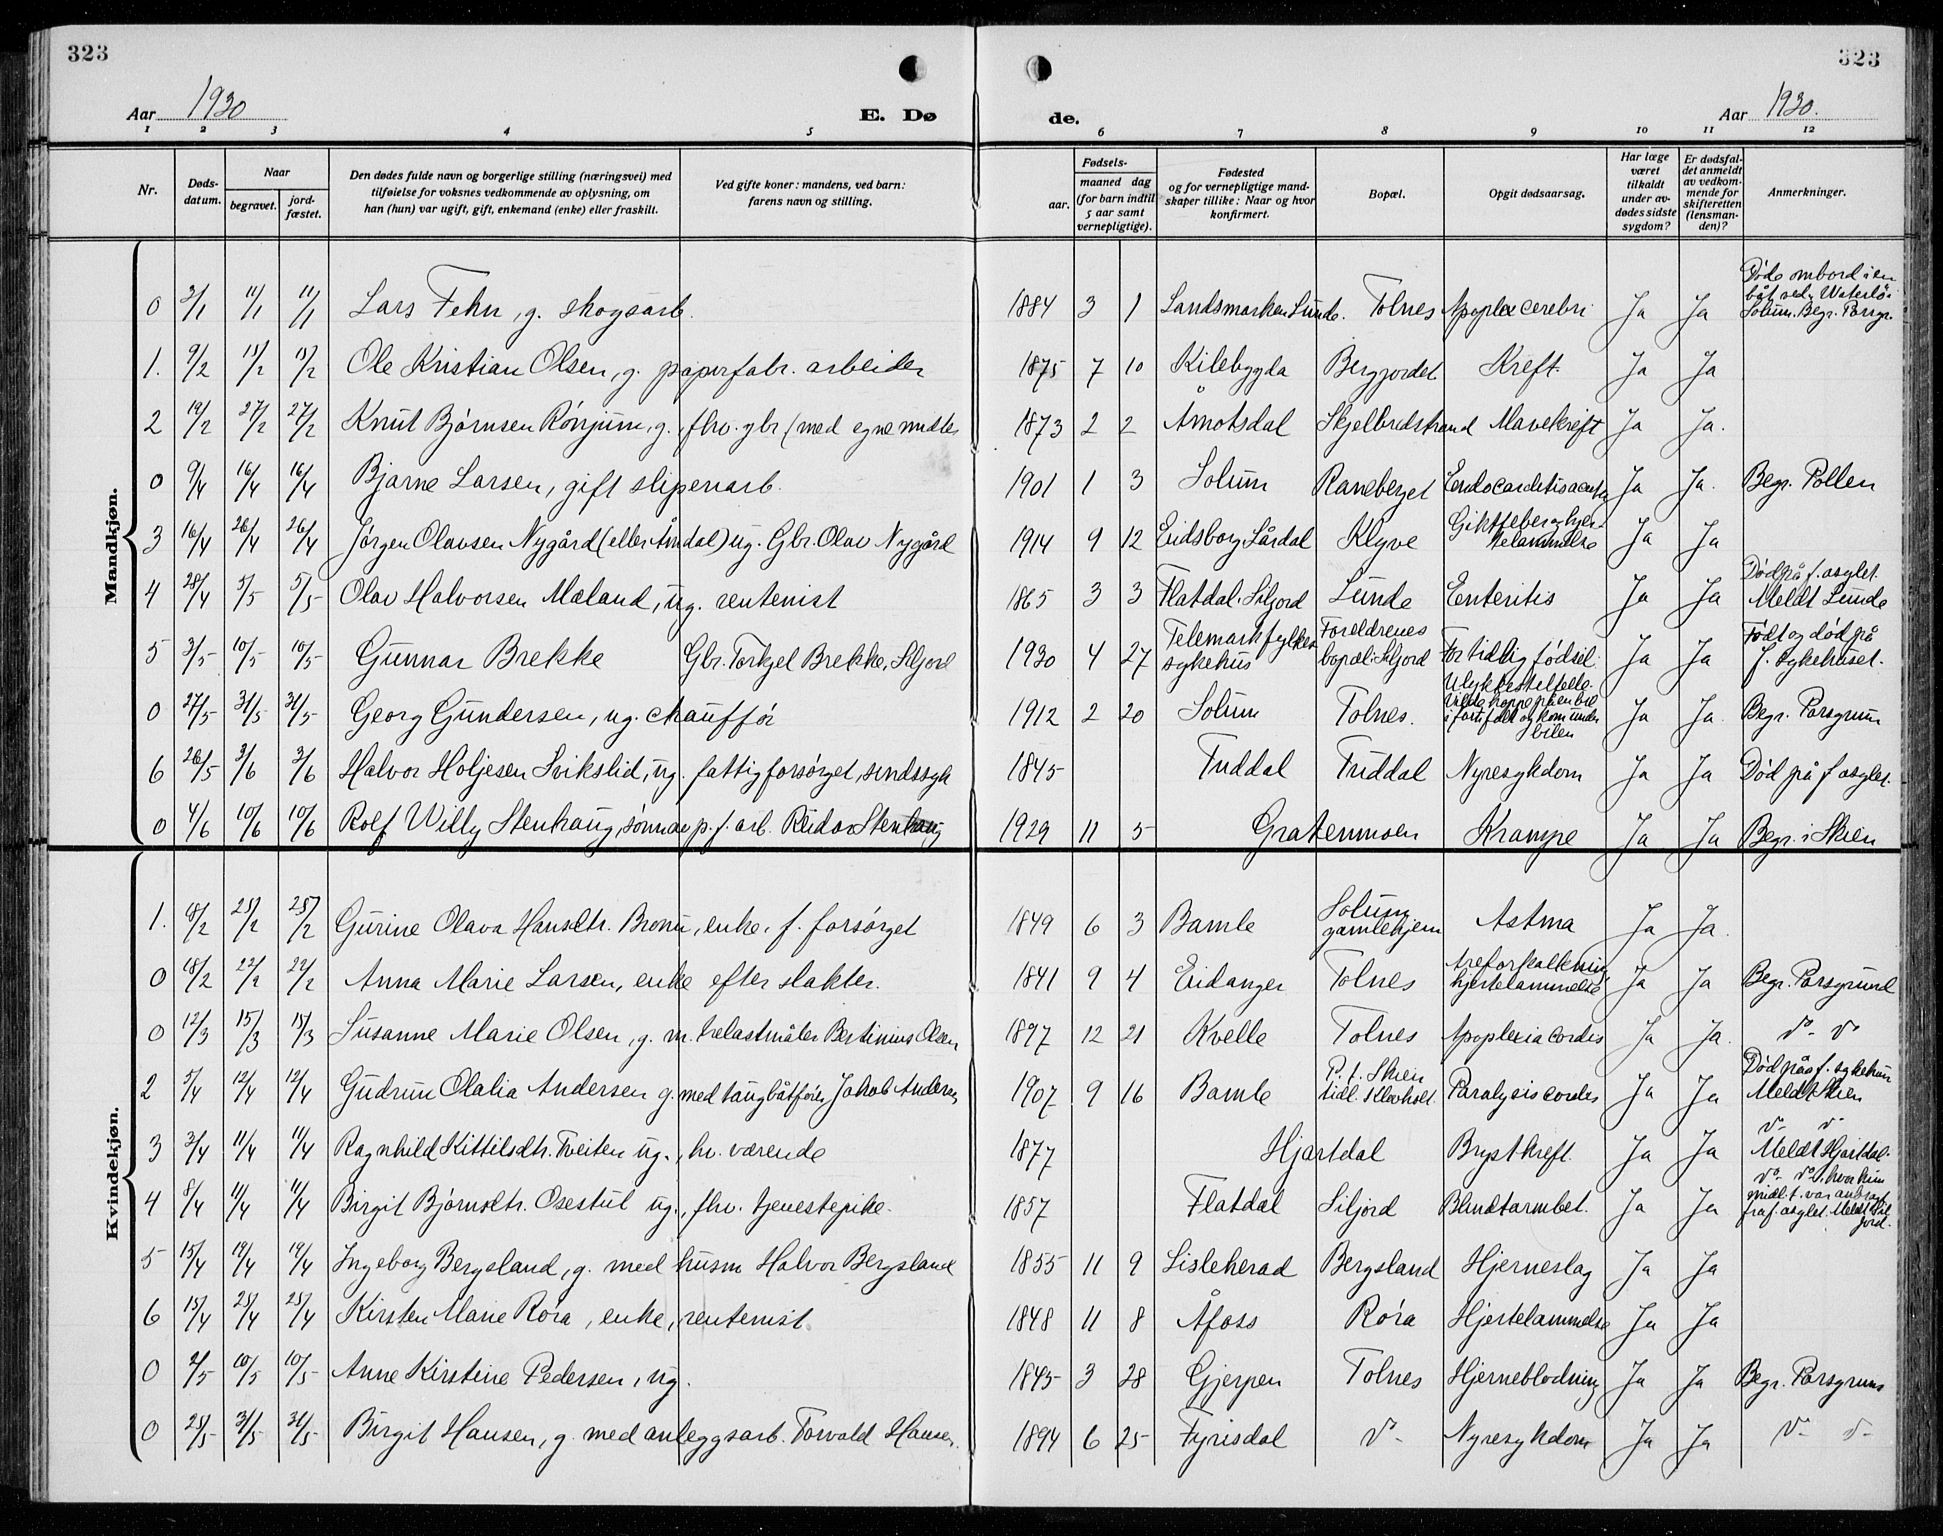 323
323
Aar 1930
E. Dø
de.
Aar 1930.
1 2 3 4 5 6 7 8 9 10 11 12
Nr. Døds-datum. Naar begravet. jord-fæstet. Den dødes fulde navn og borgerlige stilling (næringsvei) med tilføielse for voksnes vedkommende av oplysning, om han (hun) var ugift, gift, enkemand (enke) eller fraskilt. Ved gifte koner: mandens, ved barn: farens navn og stilling. Fødsels- aar. maaned dag (for barn indtil 5 aar samt vernepligtige). Fødested og for vernepligtige mandskaper tillike: Naar og hvor konfirmert. Bopæl. Opgit dødsaarsag. Har læge været tilkaldt under avdødes sidste sygdom? Er dødsfaldet anmeldt av vedkommende for skifteretten (lensmanden)? Anmerkninger.
Mandkjøn.
0 2/1 11/1 11/1 Lars Fehn, g. skogsarb. 1884 3 1 Landsmarken Lunde. Tolnes Apoplex cerebri Ja Ja Døde ombord i en båt ved Solum. Begr. Porsgr.
1. 9/2 15/2 15/2 Ole Kristian Olsen, g. papirfabr. arbeider 1875 7 10 Kilebygda Bergjordet Kreft. Ja Ja
2 19/2 27/2 27/2 Knut Bjørnsen Rønjum, g., fhv. gbr (med egne midler 1873 2 2 Åmotsdal Skjelbredstrand Mavekreft Ja Ja.
0 9/4 16/4 16/4 Bjarne Larsen, gift sliperiarb. 1901 1 3 Solum Raneberget Endocarditis acuta Ja Ja. Begr. Pollen
3 16/4 26/4 26/4 Jørgen Olavsen Nygård (eller Åmdal) ug. Gbr. Olav Nygård 1914 9 12 Eidsborg Lårdal Klyve Giktfeber og hjertelammelse Ja Ja
4 28/4 5/5 5/5 Olav Halvorsen Mæland, ug. rentenist 1865 3 3 Flatdal. Siljord Lunde Enteritis Ja Ja Død på f. asylet. Meldt Lunde
5 3/5 10/5 10/5 Gunnar Brekke Gbr. Torkjel Brekke, Siljord 1930 4 27 Telemark fylkes sykehus Foreldrenes bopæl: Siljord For tidlig fødsel. Ja Ja Født og død på f. sykehuset.
0 27/5 31/5 31/5 Georg Gundersen, ug. chauffør 1912 2 20 Solum Tolnes. Ulykkestilfelle. Vilde hoppe på en bil i fart falt og kom under bilen Ja Ja Begr. Porsgrunn
6 26/5 3/6 3/6 Halvor Holjesen Svikslid, ug. fattigforsørget, sindssyk 1845 Tuddal Tuddal Nyresykdom Ja Ja Død på f asylet.
0 4/6 10/6 10/6 Rolf Willy Stenhaug, sønn av p. f. arb. Reidar Stenhaug 1929 11 5 Gratenmoen Krampe Ja Ja Begr. i Skien
Kvindekjøn.
1. 18/2 25/2 25/2 Gurine Olava Hansdtr. Bronu, enke, f. forsørget 1849 6 3 Bamle Solum gamlehjem Astma Ja Ja.
0 18/2 22/2 22/2 Anna Marie Larsen, enke efter slakter. 1841 9 4 Eidanger Tolnes Areforkalkning hjertelammelse Ja Ja Begr. Porsgrund
0 12/3 15/3 15/3 Susanne Marie Olsen, g. m. trelastmåler Bertinius Olsen 1897 12 21 Kvelle Tolnes Apoplexia cordis Ja Ja. do - do
2 5/4 12/4 12/4 Gudrun Olalia Andersen g. med taugbåtfører Jakob Andersen 1907 9 16 Bamle P. t. Skien tidl. Paralysis cordis Ja Ja Død på f. sykehus Meldt Skien
3 3/4 11/4 11/4 Ragnhild Kittilsdtr. Tveiten ug., hv. værende 1877 Hjartdal Brystkreft. Ja Ja do - do Meldt Hjartdal.
4 8/4 11/4 11/4 Birgit Bjørnsdtr. Osestul ug., fhv. tjenestepike. 1857 Flatdal Siljord Blindtarmbet. Ja Ja do - do, hvor hun midl. t. var anbragt fra f. asylet. Meldt Siljord.
5 15/4 19/4 19/4 Ingeborg Bergsland, g. med husm Halvor Bergsland 1855 11 9 Lisleherad Bergsland Hjerneslag Ja Ja
6 15/4 25/4 25/4 Kirsten Marie Røra, enke, rentenist. 1848 11 8 Åfoss Røra Hjertelammelse Ja Ja
0 2/5 10/5 10/5 Anne Kirstine Pedersen, ug. 1845 3 28 Gjerpen Tolnes Hjerneblødning Ja Ja Begr. Porsgrunn
0 25/5 31/5 31/5 Birgit Hansen, g. med anleggsarb. Torvald Hansen. 1894 6 25 Fyrisdal do - Nyresykdom Ja Ja do - do -